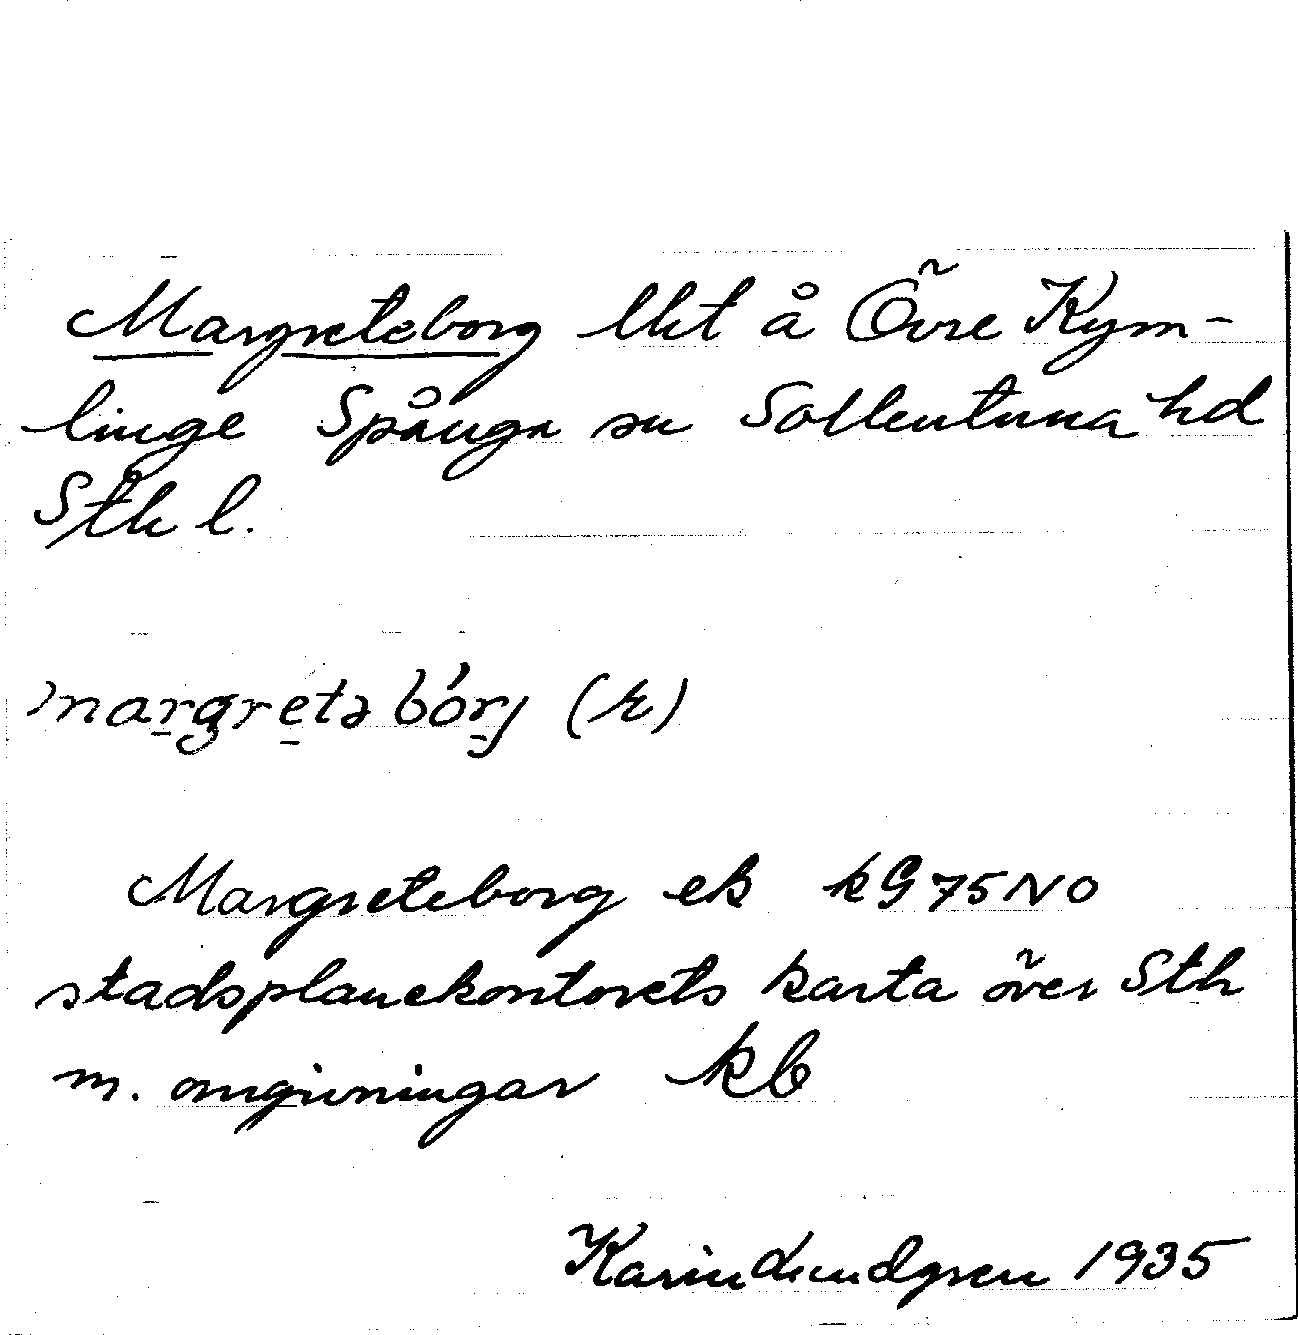 Margreteborg lht å Övre Kym-
linge Spånga sn Sollentuna hd
Sth l.
margretəbórj (k)
Margreteborg ek kG 75 NO
stadsplanekontorets karta över Sth
m. omgivningar kb
Karin Lundgren 1935